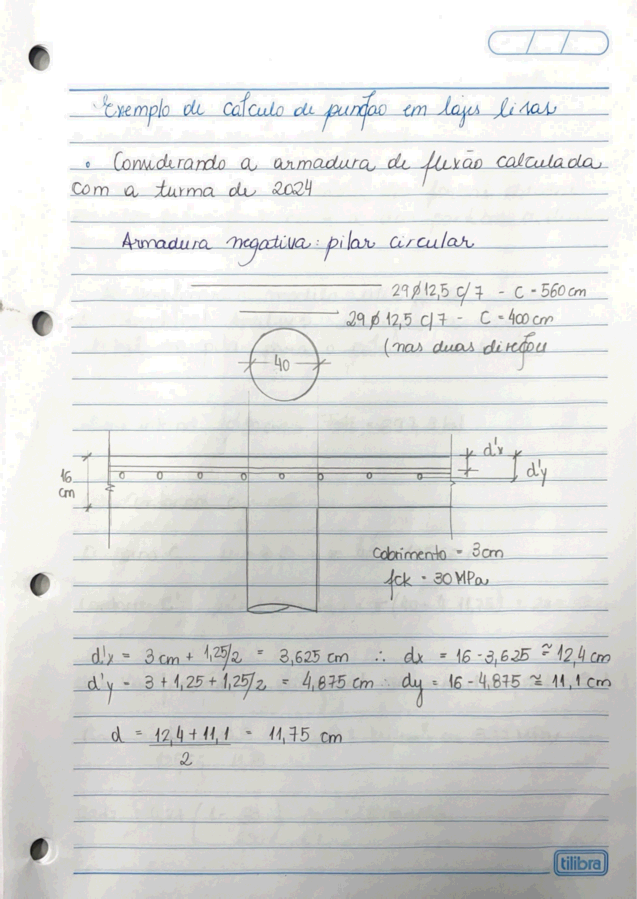 Exemplo de cálculo de punção em lajes lisas
• Considerando a armadura de flexão calculada
com a turma de 2024
Armadura negativa: pilar circular
29ø12,5 c/7 - C = 560 cm
29ø12,5 c/7 - C = 400 cm
(nas duas direções
40
d'x
16
cm
d'y
Cobrimento = 3cm
fck = 30MPa
d'x = 3cm + 1,25/2 = 3,625 cm ∴ dx = 16 - 3,625 ≅ 12,4 cm
d'y = 3 + 1,25 + 1,25/2 = 4,875 cm ∴ dy = 16 - 4,875 ≅ 11,1 cm
d = 12,4 + 11,1 = 11,75 cm
2
tilibra